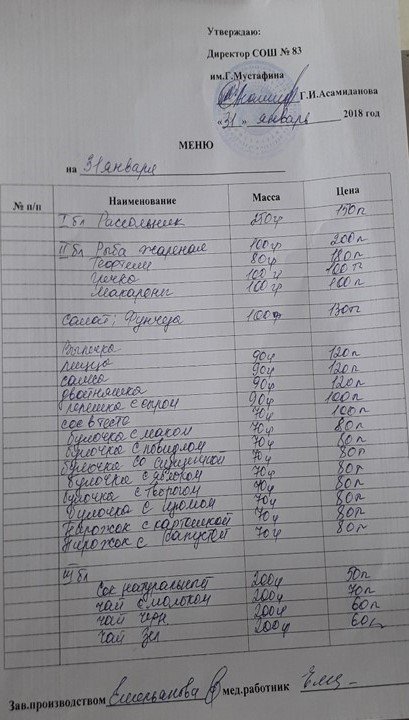 Утверждаю:
Директор СОШ № 83
им.Г.Мустафина
Г.И.Асамиданова
«31» январь 2018 год
МЕНЮ
на 31 января
№ п/п Наименование Масса Цена
I бл Рассольник 250гр 150т
II бл Рыба жареная 100гр 200т
Тефтели 80гр 180т
Гречка 100гр 100т
Макароны 100гр 100т
салат: Фунчеза 100гр 130тг
Выпечка
пицца 90гр 120т
самса 90гр 120т
двойняшка 90гр 120т
лепешка с сыром 90гр 100т
сос в тесте 70гр 100т
булочка с маком 70гр 80т
булочка с повидлом 70гр 80т
булочка со сгущенкой 70гр 80т
булочка с 70гр 80т
булочка с творогом 70гр 80т
булочка с изюмом 70гр 80т
Пирожок с картошкой 70гр 80т
Пирожок с капустой 70гр 80т
III бл
Сок натуральный 200гр 50т
чай с молоком 200гр 70т
чай черн. 200гр 60т
чай зел 200гр 60т
Зав.производством Емельянова мед.работник